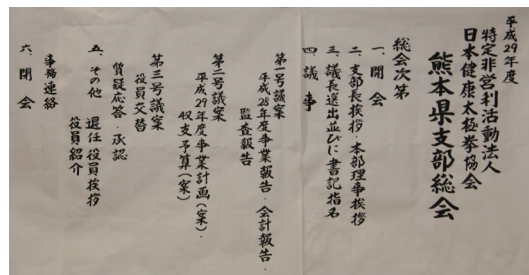 平成29年度
特定非営利活動法人
日本健康太極拳協会
熊本県支部総会
総会次第
一、開会
二、支部長挨拶・本部理事挨拶
三、議長選出並びに書記指名
四 議事
第一号議案
平成28年度事業報告・会計報告・
監査報告
第二号議案
平成29年度事業計画(案)・
収支予算(案)
第三号議案
役員交替
質疑応答・承認
五、その他 退任役員挨拶
役員紹介
事務連絡
六、閉会